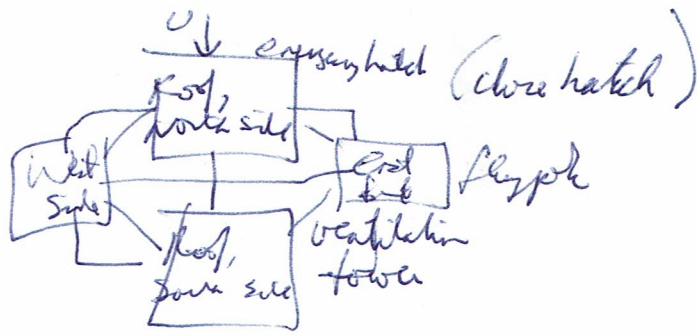 U
emergency hatch
(close hatch)
Roof,
north side
West
side
East
side
flagpole
Roof,
south side
ventilation
tower